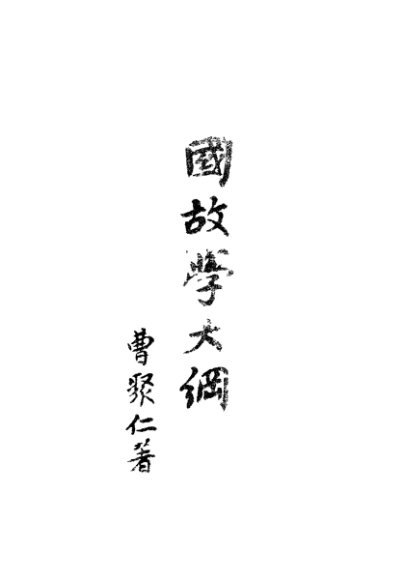 國故學大綱
曹聚仁著